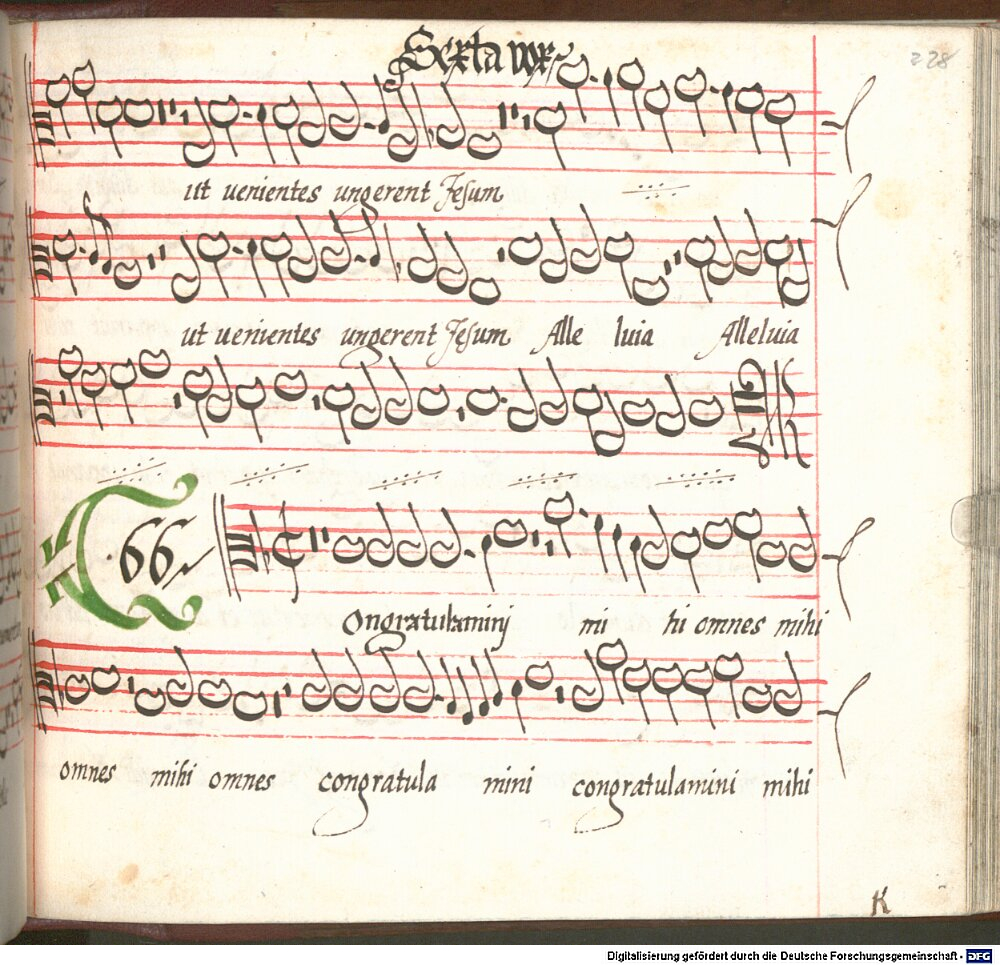 Sexta vox
228
ut uenientes ungerent Jesum
ut uenientes ungerent Jesum Alle luia Alleluia
66
Congratulamini mi hi omnes mihi
omnes mihi omnes congratula mini congratulamini mihi
K
Digitalisierung gefördert durch die Deutsche Forschungsgemeinschaft - DFG